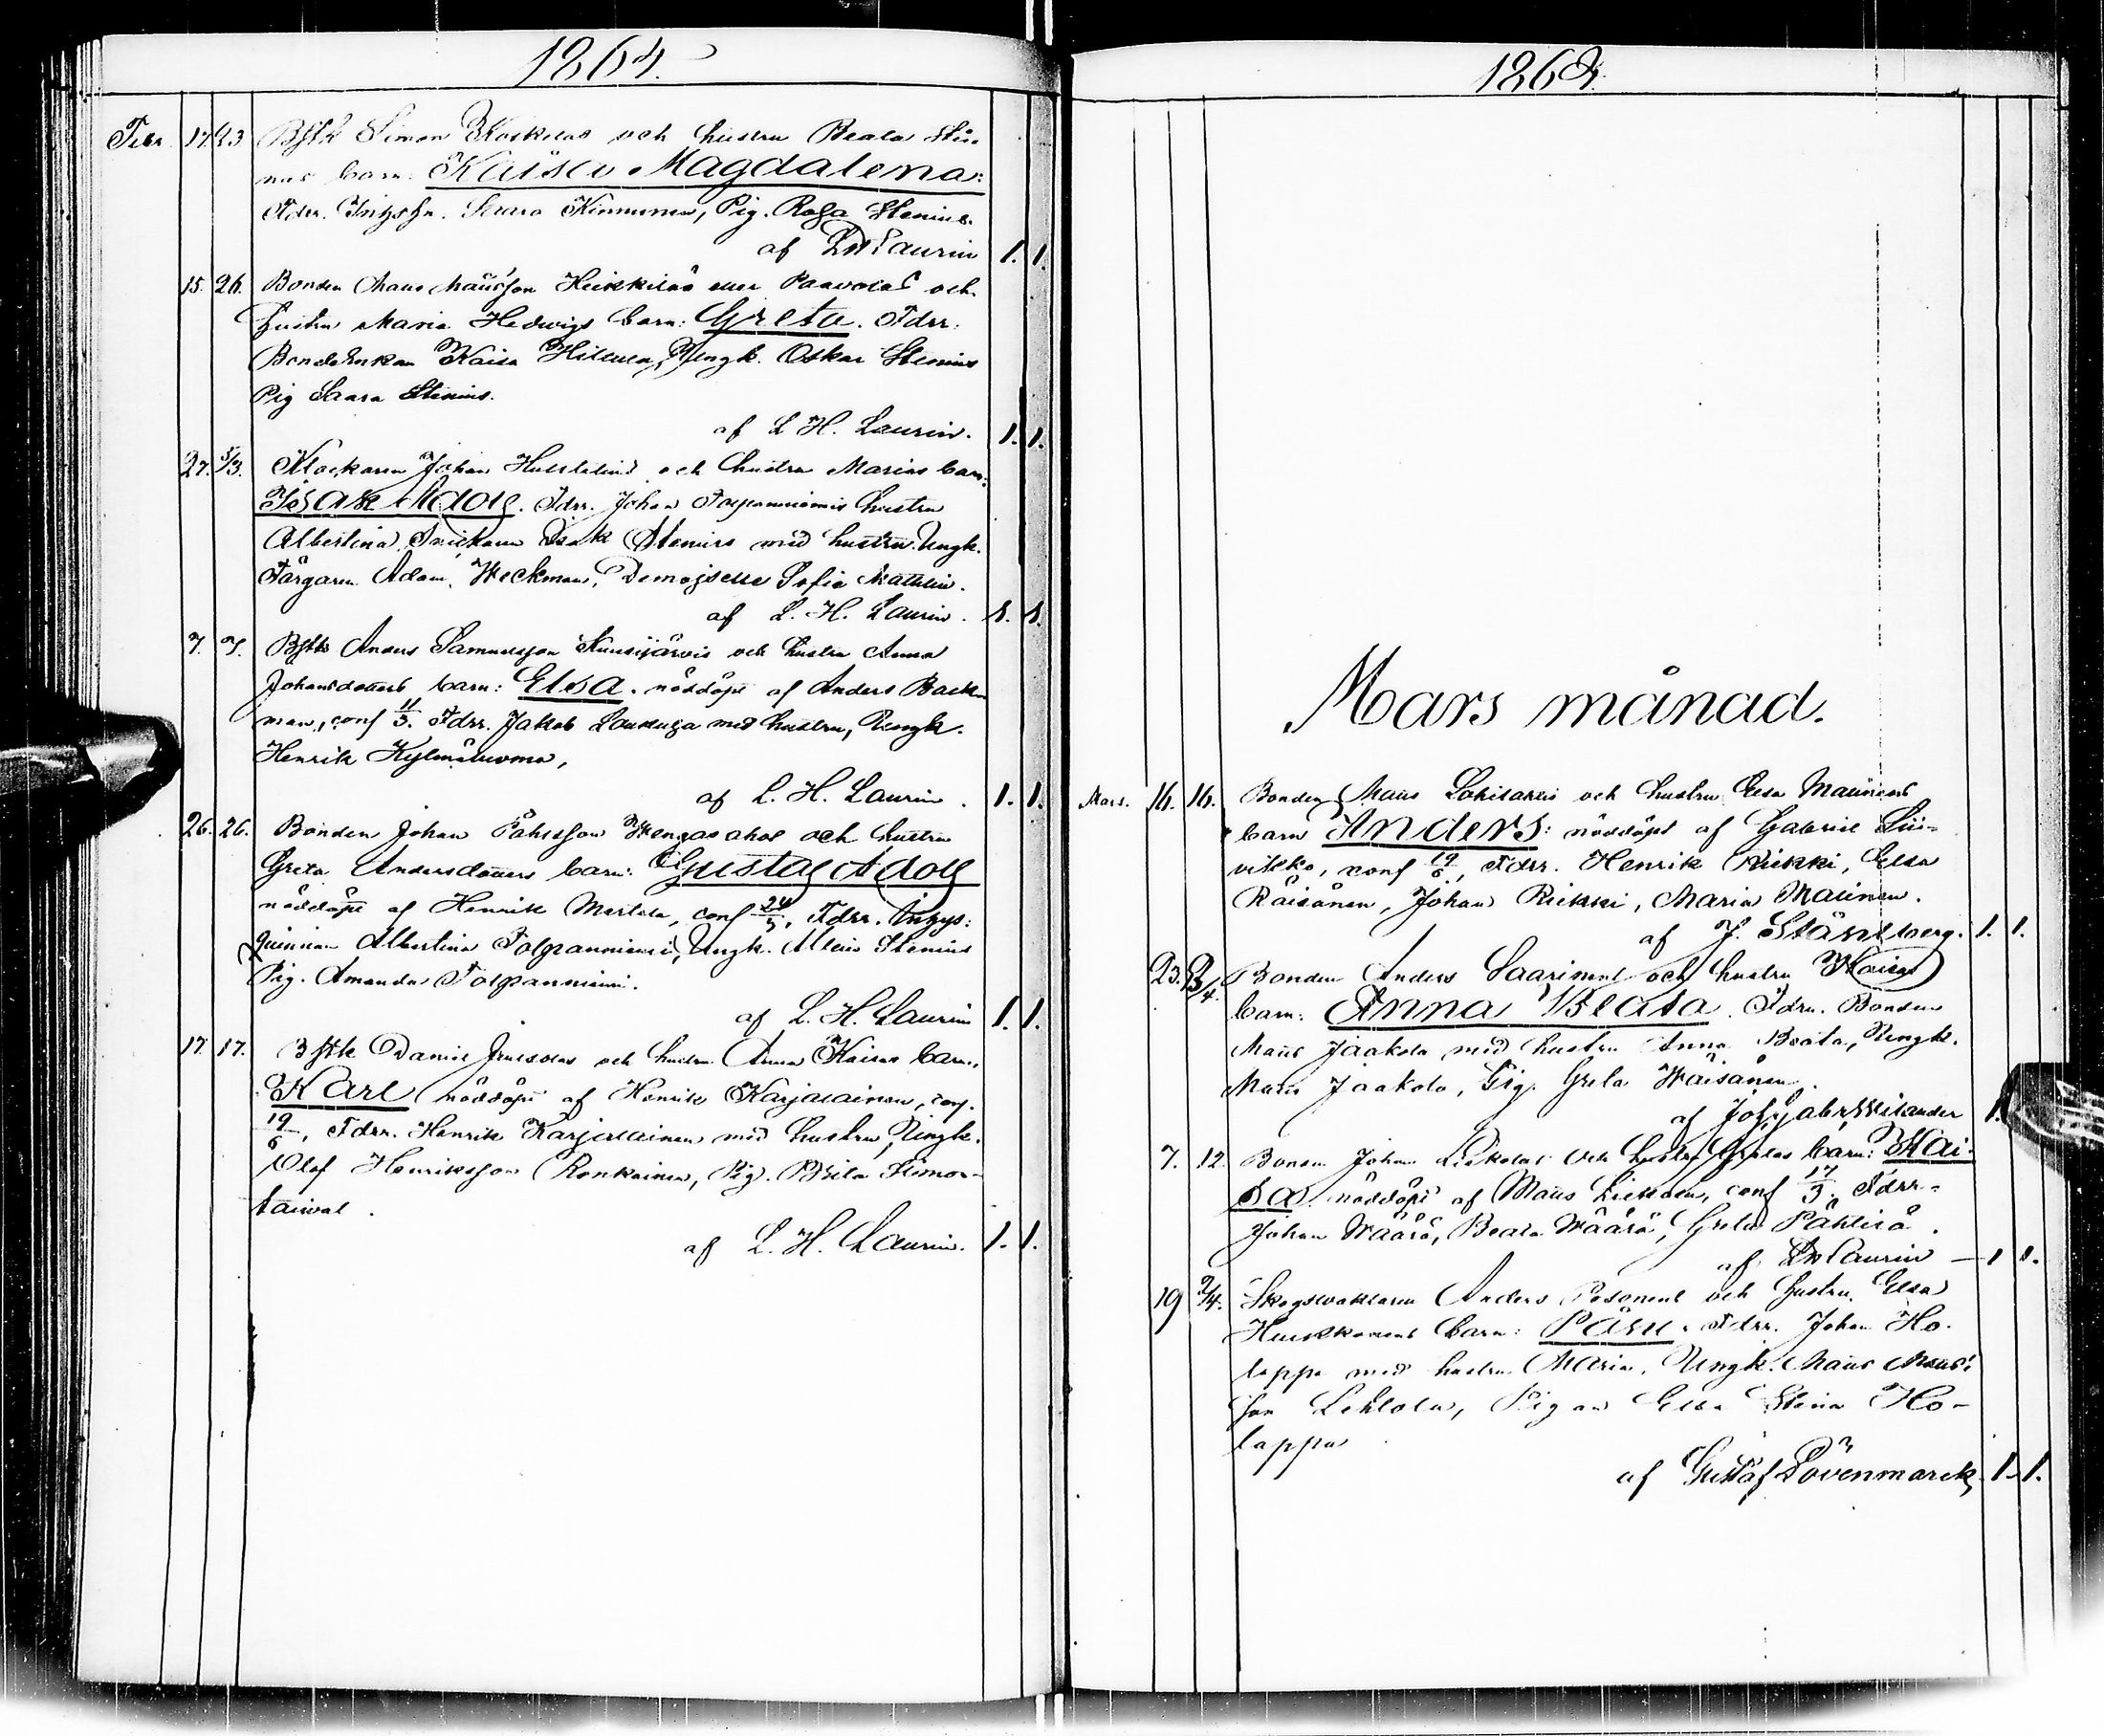 1864.
Febr. 17. 23 Bstk Simon Koskelas och hustru Beata Stii-
nas barn: Kaisa Magdalena:
Fdrr. Saara Kinnunen, Pig. Rosa Stenius.
af LH Laurin 1. 1.
15. 26. Bonden Maus Mausson Heikkiläs eller Paavolas och
hustru Maria Hedwigs barn: Greta. Fdrr.
Bondeenkan Kaisa Ungk. Oskar Stenius
Pig Saara Stenius.
af L H. Laurin. 1. 1.
27. 5/3. Klockaren Johan och hustru Marias barn:
Isak Adolf. Fdrr. Johan Tolpanniemis hustru
Albertina, Isak Stenius med hustru. Ungk.
Färgaren Adam Heckman, Demojselle Sofia
af L. H. Laurin. 1. 1.
7. 7. Bstk Anders Samuelsson Kuusijärvis och hustru Anna
Johansdotters barn: Elsa. nöddöpt af Anders Back-
man, conf 11/3. Fdrr. Jakob med hustru, Ungk.
Henrik Kylmäluoma,
af L. H. Laurin. 1. 1.
26. 26. Bonden Johan Påhlsson och hustru
Greta Andersdotters barn: Gustaf Adolf
nöddöpt af Henrik Mertala, conf 24/3, Fdrr. Inhys:
quinnan Albertina Tolpanniemi, Ungk. Maus Stenius
Pig. Amanda Tolpanniemi.
af L. H. Laurin 1. 1.
17. 17. Bstk Daniel och hustru Anna Kaisas barn:
Karl nöddöpt af Henrik Karjalainen, conf.
19/6, Fdrr. Henrik Karjalainen med hustru, Ungk.
Olof Henriksson Ronkainen, Pig. Brita Simos-
taival.
af L. H. Laurin. 1. 1.
1864.
Mars månad.
Mars. 16. 16. Bonden Maus och hustru Elsa
barn Anders: nöddöpt af Gabriel Sii-
vikko, conf 19/6, Fdrr. Henrik Riekki, Elsa
Räisänen, Johan Riekki, Maria Malinen.
af J. Ståhlberg. 1. 1.
23. 3/4. Bonden Anders Saarinens och hustru Kaisas
barn: Anna Beata. Fdrr. Bonden
Maus Jaakola med hustru Anna Beata, Ungk.
Maus Jaakola, Pig. Greta Wäisänen.
af Joh. Gabr. Wilander 1.
7. 12. Bonden Johan och hustru Gretas barn: Kai-
sa. nöddöpt af Maus conf 17/3. Fdrr.
Johan Määttä, Beata Määttä, Greta Påhtilä.
af LH Laurin — 1 1.
19 2/4. Skogswaktaren Anders Posonens och hustru Elsa
barn: Påhl. Fdrr. Johan Ho-
lappa med hustru Maria, Ungk. Maus Maus-
son Lehtola, Pigan Elsa Stina Ho-
lappa.
af Gustaf Lövenmarck 1. 1.